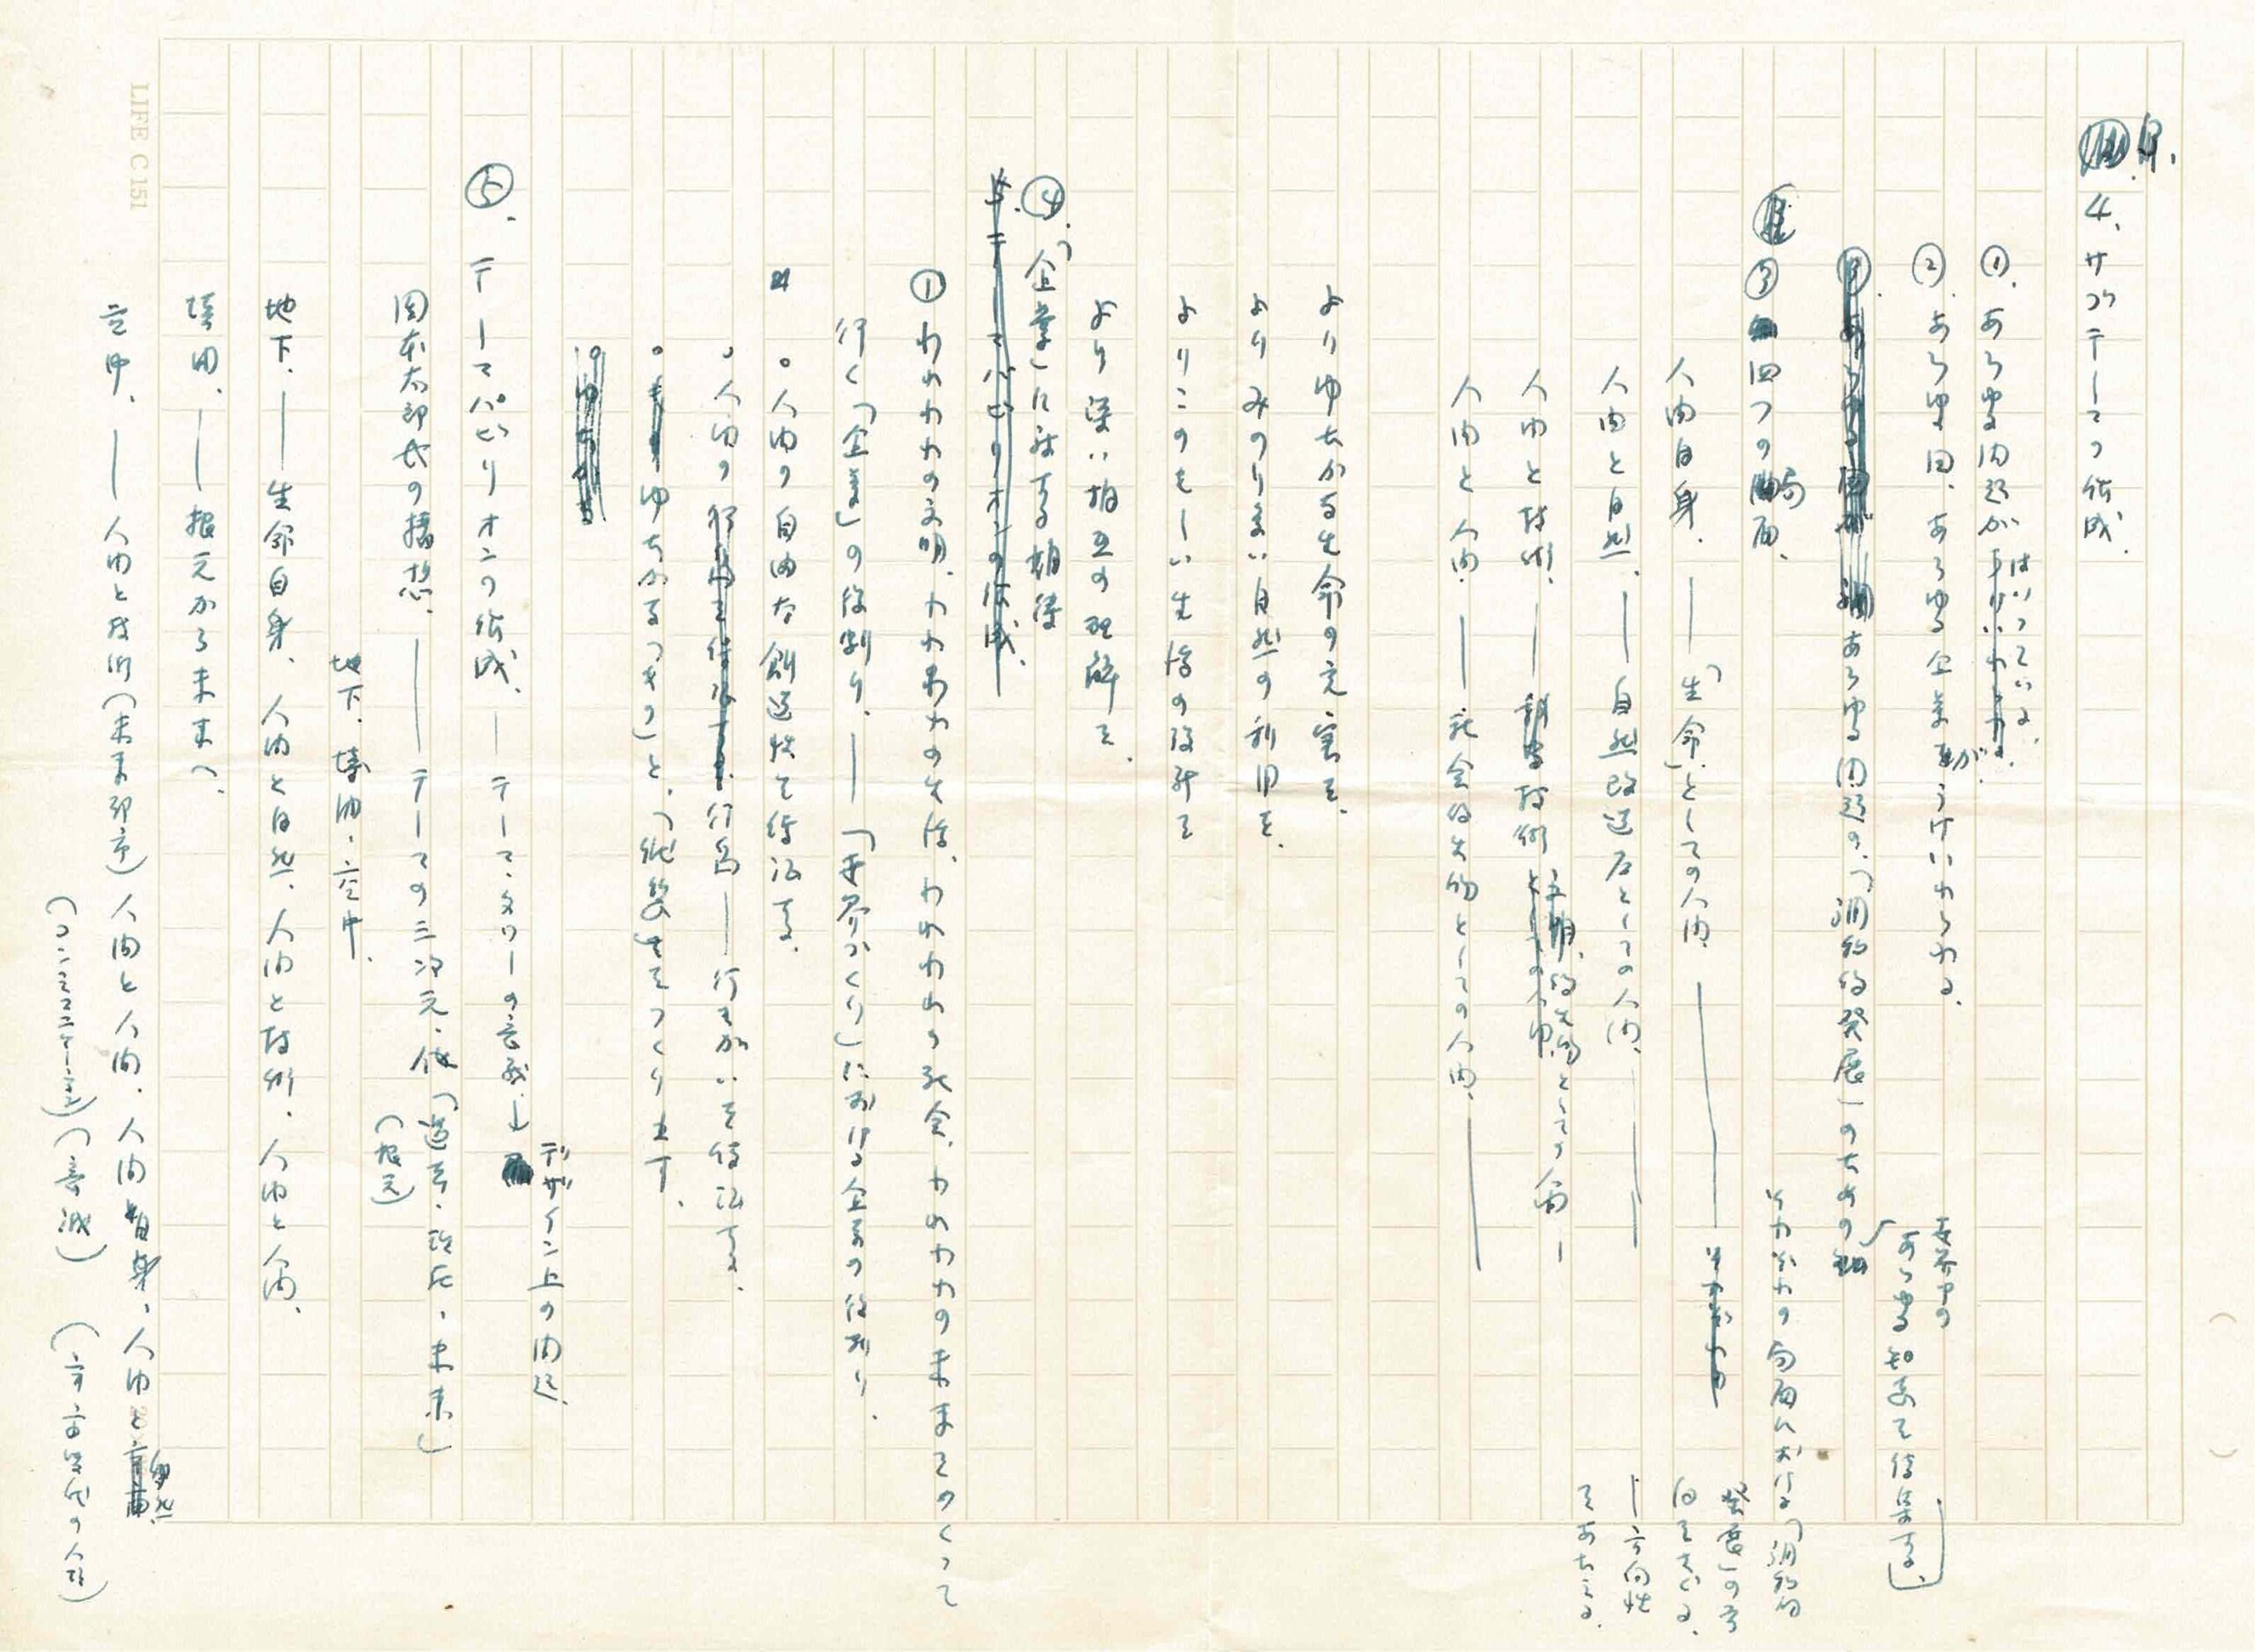 4、サブテーマの作成.
①. あらゆる内題が はいっている.
②. あらゆる国、あらゆる企業が うけいれられる.
あらゆる問題の、「調和的発展」のための
世界中の
あらゆる知恵を結集する.
③ 四つの局面.
それぞれの局面における「調和的
発展」の方
向をさぐる.
―方向性
をあたえる.
人間自身. ―「生命」としての人間.
人間と自然. ―自然改造者としての人間.
人間と技術. ―技術 文明的生物としての人間―
人間と人間. ―社会的生物としての人間.
よりゆたかな生命の充実を.
よりみのり多い自然の利用を.
よりこのましい生活の設計を
より深い相互の理解を.
④.「企業」に対する期待
5. テーマパビリオンの作成.
① われわれの文明、われわれの生活、われわれの社会、われわれの未来をつくって
行く「企業」の役割り. ―「世界づくり」における企業の役割り.
。人間の自由な創造性を保証する.
。人間の 行為―行きがいを保証する.
。ゆたかな「つき」と、「組織」をつくり出す.
⑤. テーマパビリオンの作成、―テーマ・タワーの意義.↓
デザイン上の問題.
岡本太郎氏の構想. ―テーマの三次元化「過去、現在、未来」
(根元)
地下. 境内. 空中.
地下. ―生命自身、人間と自然、人間と技術、人間と人間.
境内. ―根元から未来へ.
空中. ―人間と技術(未来都市)人間と人間、人間自身、人間と自然
(コンミュニケーション)(意識) (宇宙時代の人間)
LIFE C 151